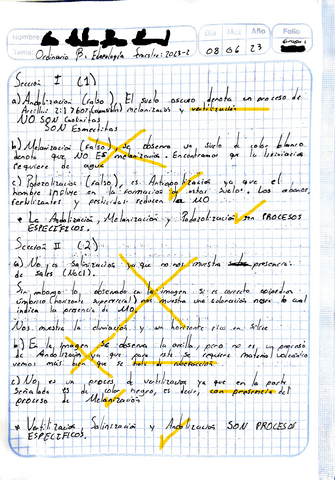 Nombre:
Día Mes Año Folio
Tema: Ordinario B: Edafología Semestre: 2023-2 08 06 23
Sección I (1)
a) Andolización (falso). El suelo oscuro denota un proceso de
arcillas 2:1 melanización y vertilización
NO SON Caolinitas
SON Esmectitas
b) Melanización (falso) y se observa un suelo de color blanco
denota que NO Es melanizarse. Encontramos que la lixiviación
requiere de agua
c) Podzolización (falso), es Antropolización ya que el
hombre influye en la formación de estos suelos. Los abonos,
fertilizantes y pesticidas reducen MO
* La Andolización, Melanización y Podzolización son PROCESOS
ESPECÍFICOS.
Sección II (2)
a) No, es salinización ya que no nos muestra presencia
de sales (NaCl).
Sin embargo lo observado en la imagen si es correcto
(horizonte superficial) nos muestra una coloración negra lo cual
indica la presencia de MO.
Nos muestra la eluviación y un horizonte rico en
b) En la imagen se observa la arcilla, pero no es un proceso
de Andolización ya que para esto se requiere material volcánico
vemos más bien que se trata de
c) No, es un proceso de vertilización ya que en la parte
señalada es de color negro, es decir, con presencia del
proceso de Melanización
* Vertilización, Salinización y Andolización SON PROCESOS
ESPECÍFICOS.